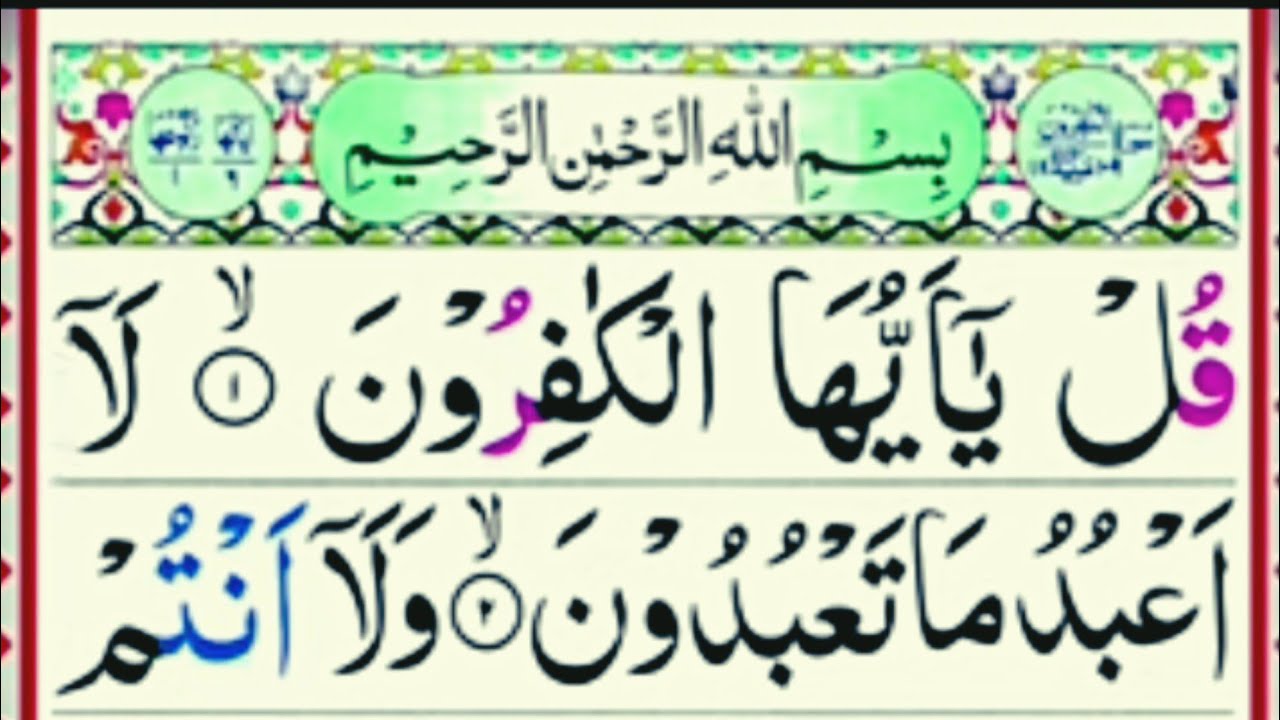 بِسْمِ اللهِ الرَّحْمٰنِ الرَّحِيْمِ
قُلْ يٰۤاَيُّهَا الْكٰفِرُوْنَ ۙ‏﴿۱﴾ لَاۤ
اَعْبُدُ مَا تَعْبُدُوْنَ ۙ‏﴿۲﴾ وَلَاۤ اَنْتُمْ